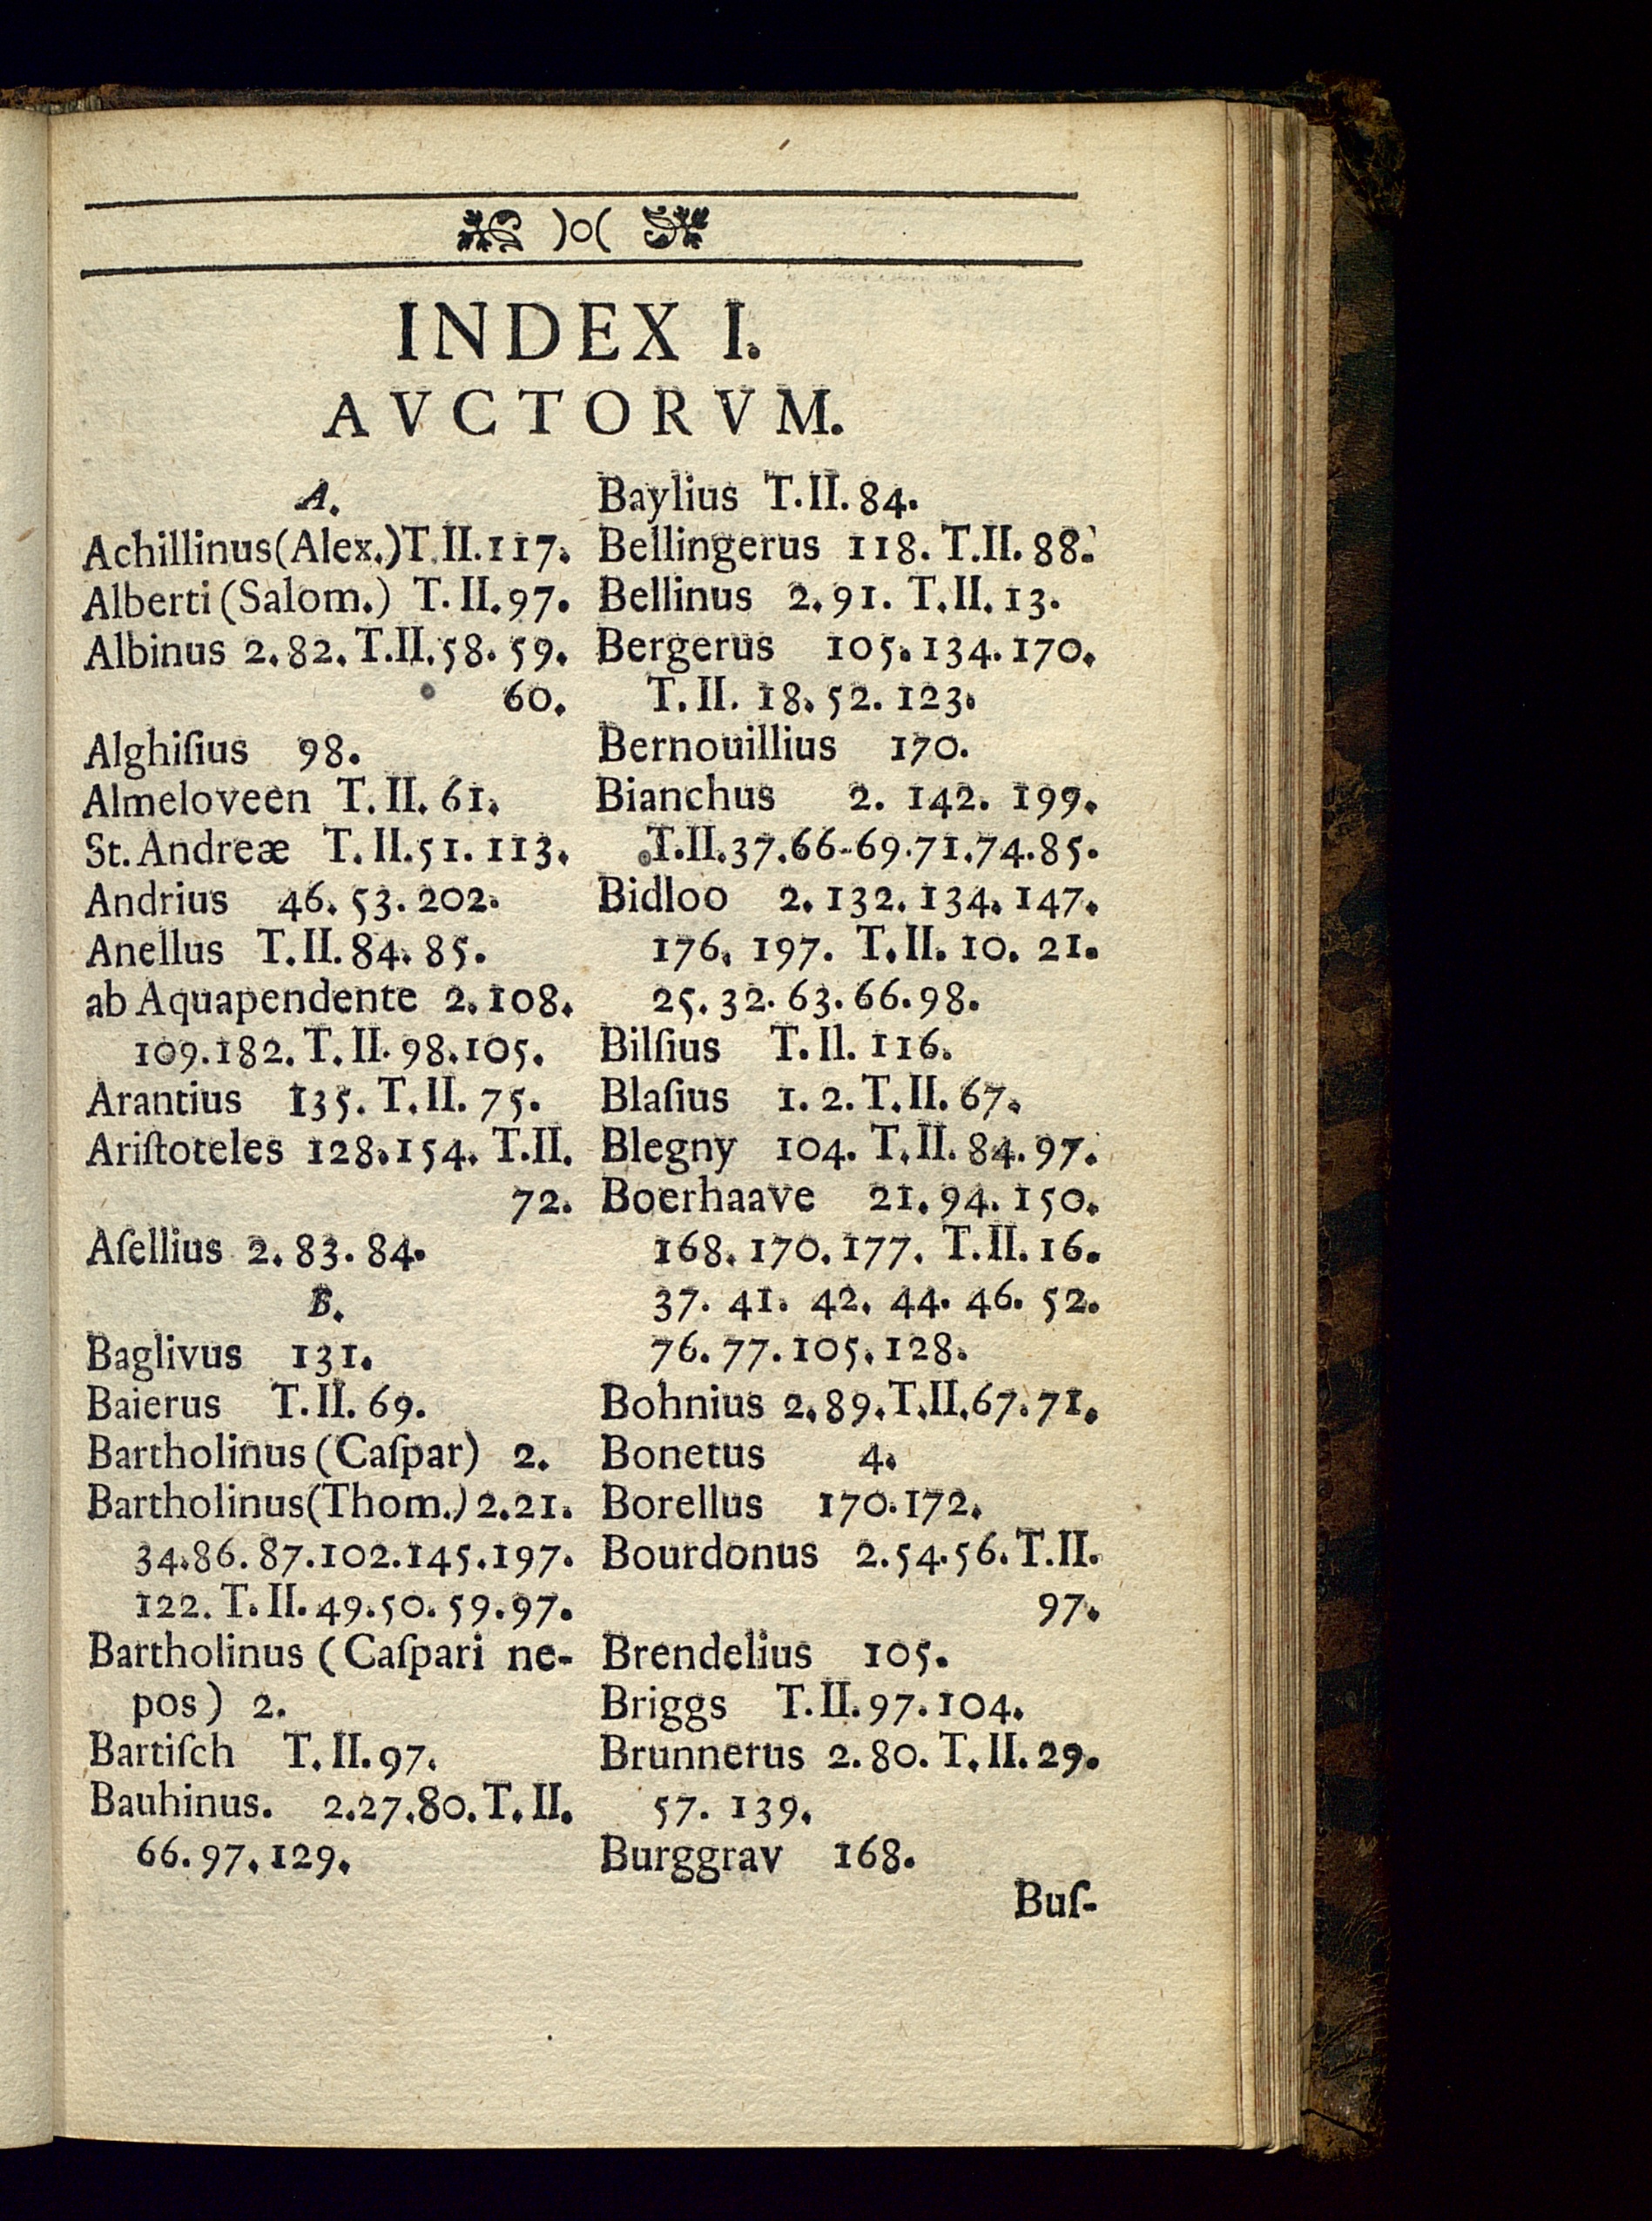 )o(
INDEX I.
AVCTORVM.
A.
Achillinus(Alex.)T.II.117.
Alberti (Salom.) T. II.97.
Albinus 2.82. T.II.58. 59.
60.
Alghiſius 98.
Almeloveen T. II. 61.
St. Andreæ T. II.51. 113.
Andrius 46. 53. 202.
Anellus T.II. 84. 85.
ab Aquapendente 2. 108.
109.182. T. II. 98.105.
Arantius 135. T. II. 75.
Ariſtoteles 128.154. T.II.
72.
Aſellius 2. 83. 84.
B.
Baglivus 131.
Baierus T. II. 69.
Bartholinus (Caſpar) 2.
Bartholinus(Thom.) 2.21.
34.86. 87.102.145.197.
122. T. II. 49.50. 59.97.
Bartholinus (Caſpari ne-
pos) 2.
Bartiſch T. II. 97.
Bauhinus. 2.27.80. T. II.
66. 97. 129.
Baylius T.II. 84.
Bellingerus 118. T.II. 88.
Bellinus 2. 91. T.II. 13.
Bergerus 105. 134. 170.
T. II. 18. 52. 123.
Bernouillius 170.
Bianchus 2. 142. 199.
T.II.37.66-69.71.74.85.
Bidloo 2. 132. 134. 147.
176. 197. T. II. 10. 21.
25. 32. 63. 66. 98.
Bilſius T. II. 116.
Blaſius 1. 2. T. II. 67.
Blegny 104. T. II. 84. 97.
Boerhaave 21. 94. 150.
168. 170. 177. T. II. 16.
37. 41. 42. 44. 46. 52.
76. 77. 105. 128.
Bohnius 2.89.T.II.67.71.
Bonetus 4.
Borellus 170.172.
Bourdonus 2.54.56. T.II.
97.
Brendelius 105.
Briggs T. II. 97. 104.
Brunnerus 2. 80. T. II. 29.
57. 139.
Burggrav 168.
Buſ-